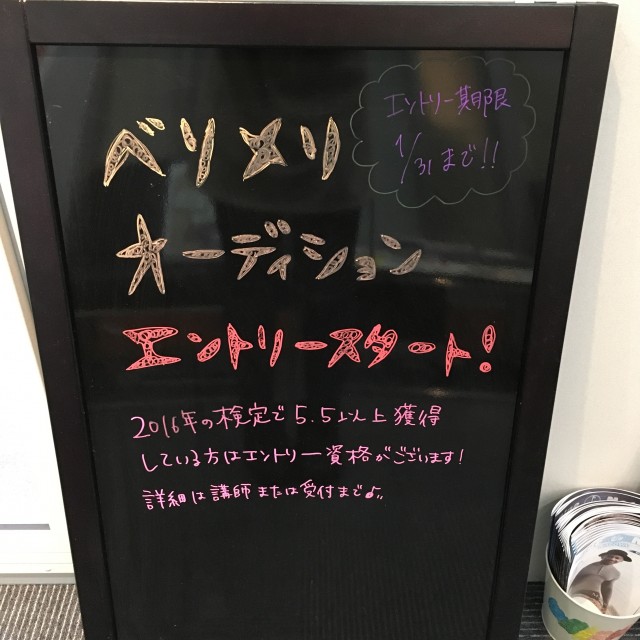 ベリメリ
オーディション
エントリースタート!
エントリー期限
1/31まで!!
2016年の検定で5.5以上獲得
している方はエントリー資格がございます!
詳細は講師または受付まで♪